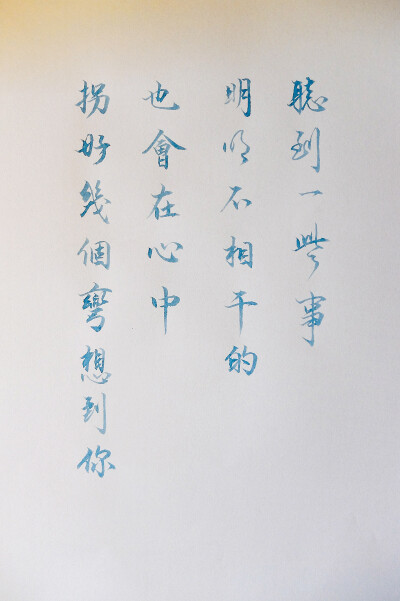 聽到一些事
明明不相干的
也會在心中
拐好幾個彎想到你